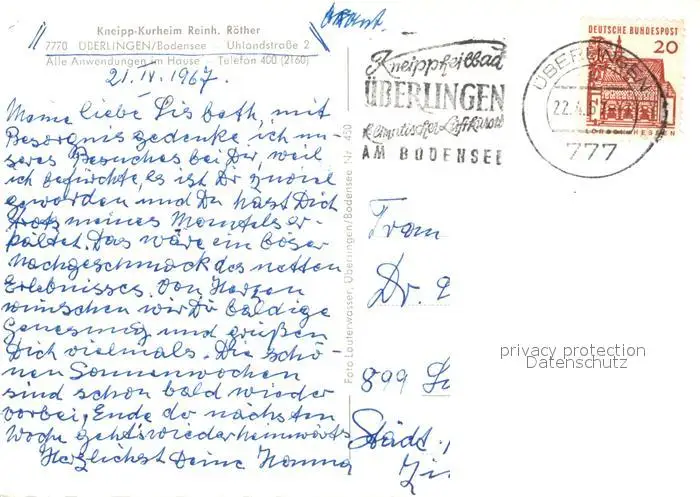 Kneipp-Kurheim Reinh. Röther
7770 ÜBERLINGEN/Bodensee - Uhlandstraße 2
Alle Anwendungen im Hause - Telefon 400 (2160)
21. IV. 1967.
Meine liebe Lisbeth, mit
Besorgnis gedenke ich un-
seres Besuches bei Dir, weil
ich befürchte, es ist Dir zuviel
geworden und Du hast Dich
trotz meines Mantels er-
kältet. Das wäre ein böser
Nachgeschmack des netten
Erlebnisses. Von Herzen
wünschen wir Dir baldige
Genesung und grüßen
Dich vielmals. Die schö-
nen Sonnenwochen
sind schon bald wieder
vorbei, Ende der nächsten
Woche geht's wieder heimwärts
Herzlichst Deine Hanna
Foto Lauterwasser, Überlingen/Bodensee Nr. 430
Kneippheilbad
ÜBERLINGEN
Klimatischer Luftkurort
AM BODENSEE
ÜBERLINGEN
22.4.6
777
DEUTSCHE BUNDESPOST
20
LORSCH/HESSEN
Frau
Dr.
899
Städt.
privacy protection
Datenschutz